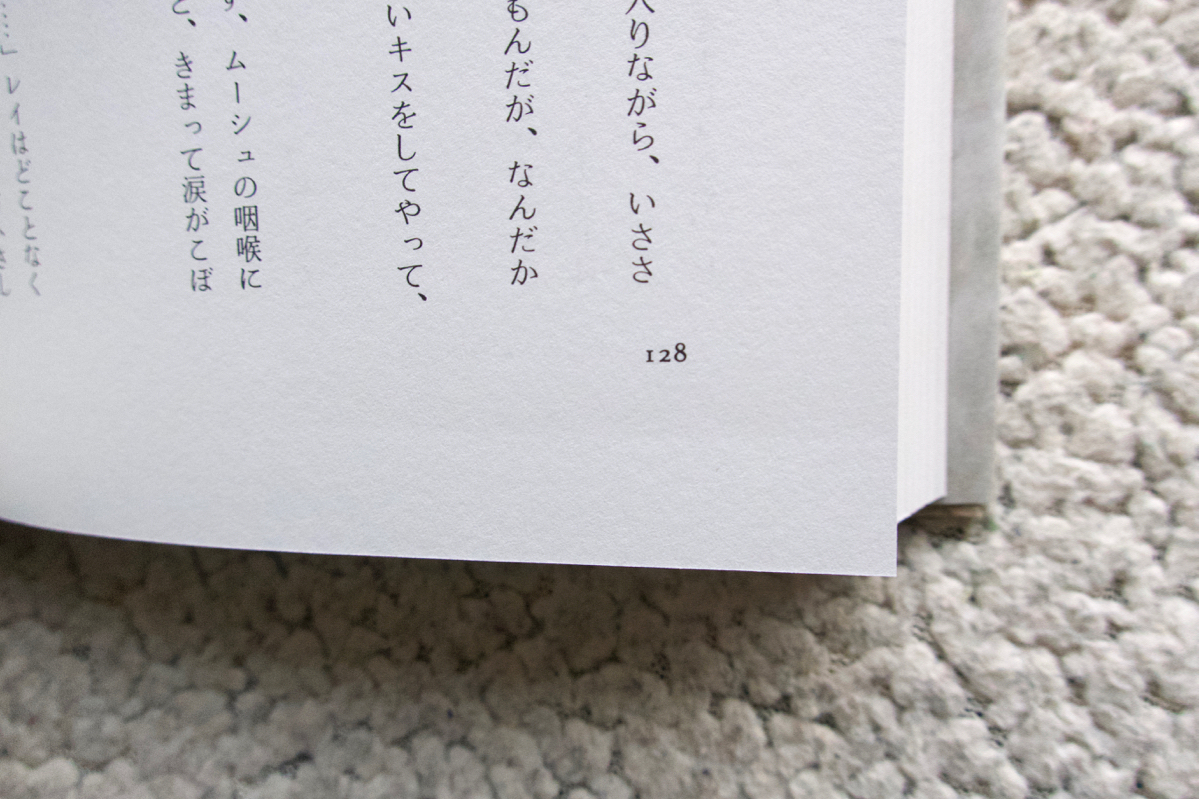 入りながら、いささ
もんだが、なんだか
いキスをしてやって、
ず、ムーシュの咽喉に
と、きまって涙がこぼ
……」レイはどことなく
128